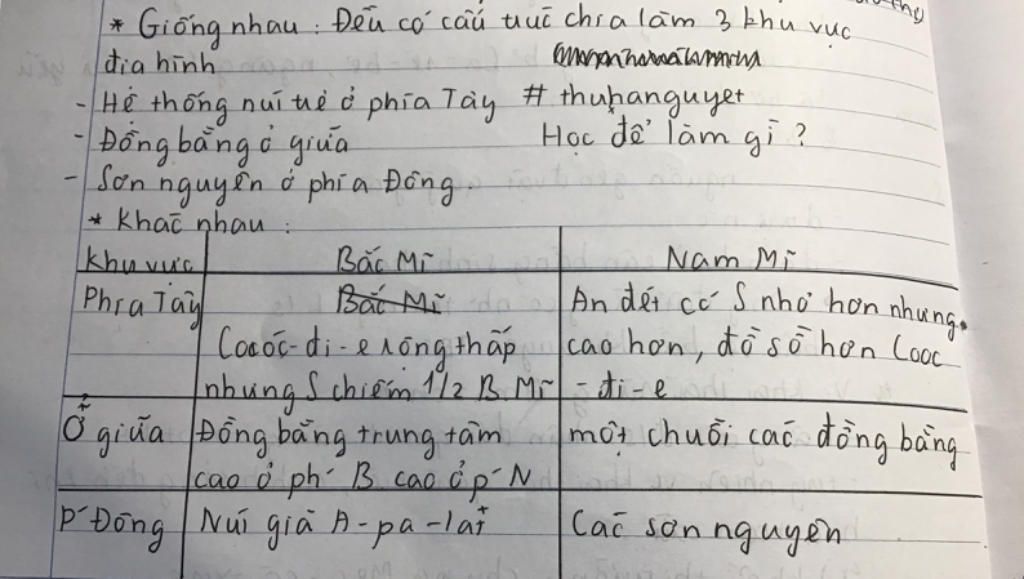 * Giống nhau : Đều có cấu trúc chia làm 3 khu vực
địa hình
- Hệ thống núi trẻ ở phía Tây # thuhanguyet
- Đồng bằng ở giữa Học để làm gì ?
- Sơn nguyên ở phía Đông.
* Khác nhau :
Khu vực Bắc Mĩ Nam Mĩ
Phía Tây Bắc Mĩ An đét có S nhỏ hơn nhưng
Coocđi-e rộng thấp cao hơn, đồ sộ hơn Cooc
nhưng S chiếm 1/2 B. Mĩ -đi-e
Ở giữa Đồng bằng trung tâm một chuỗi các đồng bằng
cao ở ph´ B cao ở p´ N
p´ Đông Núi già A-pa-lat Các sơn nguyên